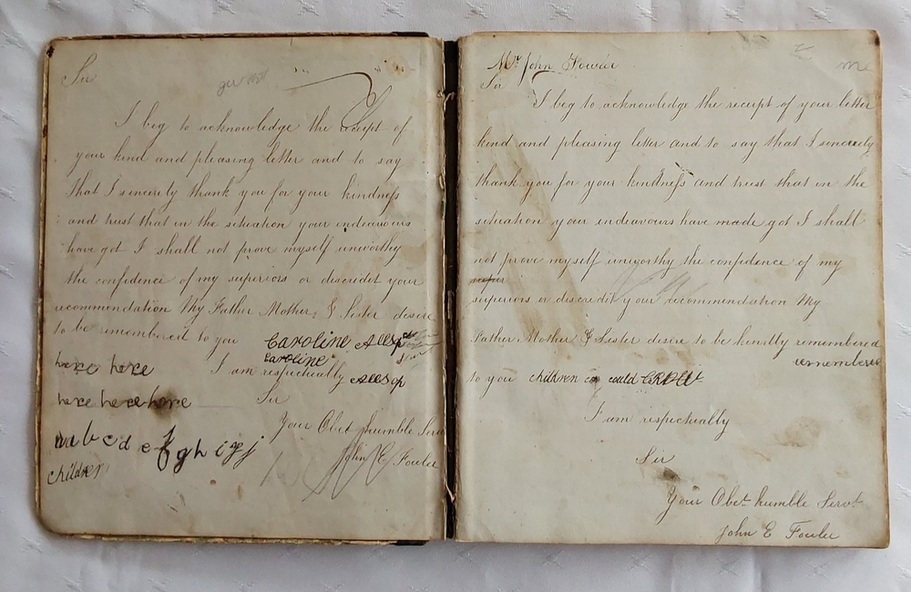 Sir
I beg to acknowledge the receipt of
your kind and pleasing letter and to say
that I sincerly thank you for your kindness
and trust that in the situation your endeavours
have got I shall not prove myself unworthy
the confedence of my superiors or discredit your
recommendation My Father Mother & Sister desire
to be remembered to you Caroline Allsop
caroline
here here I am respectually Allsop
here here here Sir
Your Obet humble Serv
a b c d e f g h i g j John E Fowler
children
Mr John Fowler
Sir
I beg to acknowledge the receipt of your letter
kind and pleasing letter and to say that I sincerely
thank you for your kindness and trust that in the
situation your indeavours have made got I shall
not prove myself unworthy the confidence of my
super
superiors or discredit your recommendation My
Father Mother & Sister desire to be kindly remembered
remembered
to you children could
I am respectually
Sir
Your Obet humble Servt
John E Fowler